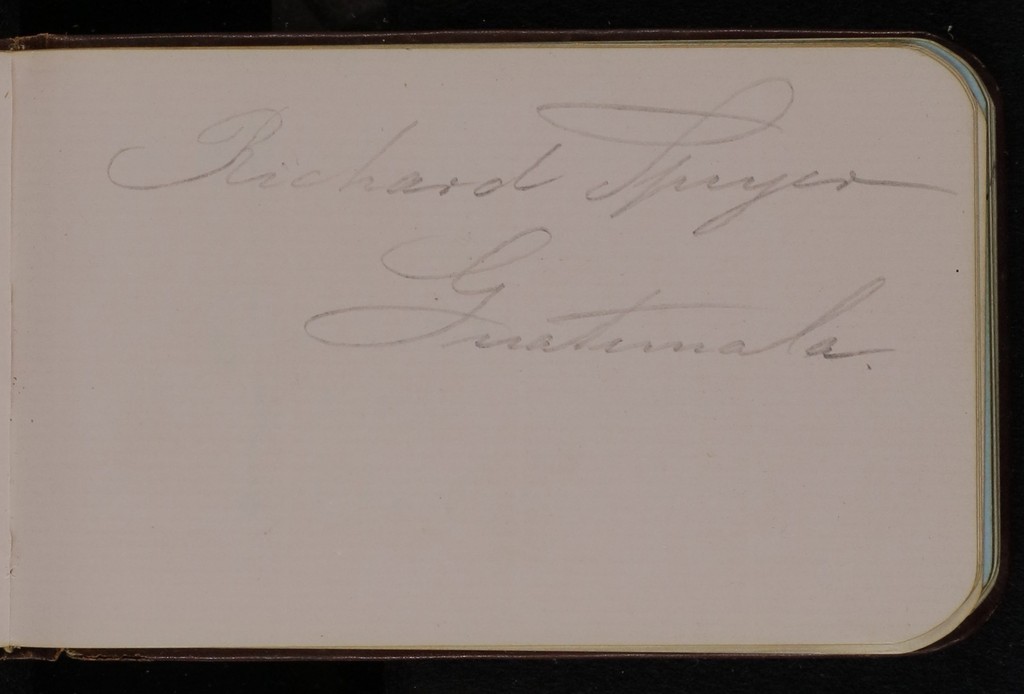 Richard Speyer
Guatemala.